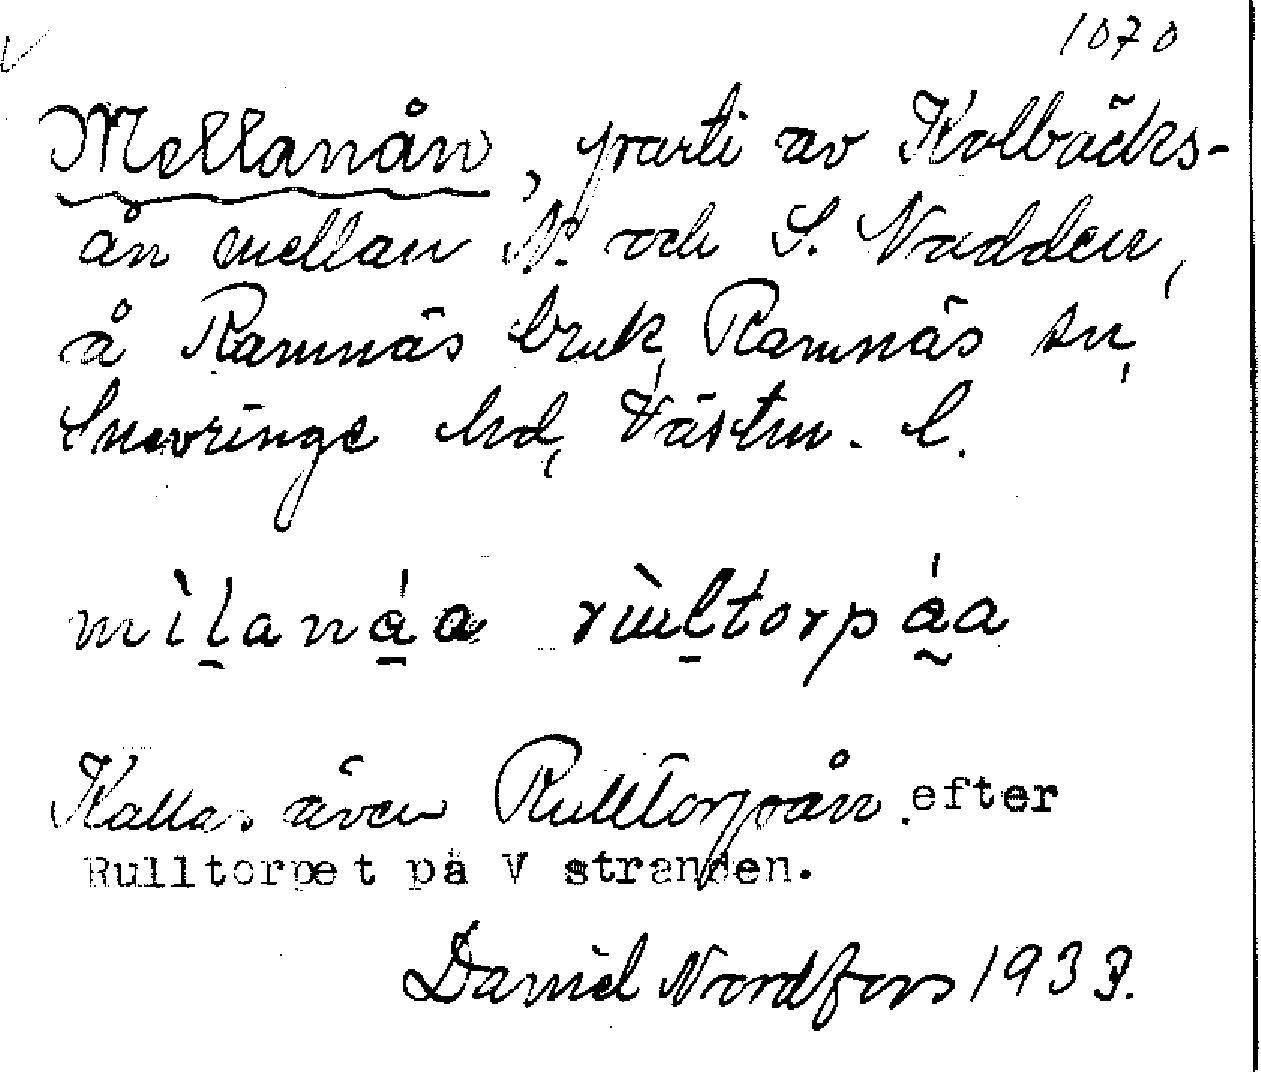 1070
Mellanån, parti av Kolbäcks-
ån mellan N. och S. Nadden,
å Ramnäs bruk, Ramnäs sn,
Snevringe hd, Västm. l.
mìlanáa rùltorpáa
Kallas även Rulltorpån. efter
Rulltorpet på V stranden.
Daniel Nordfors 1933.